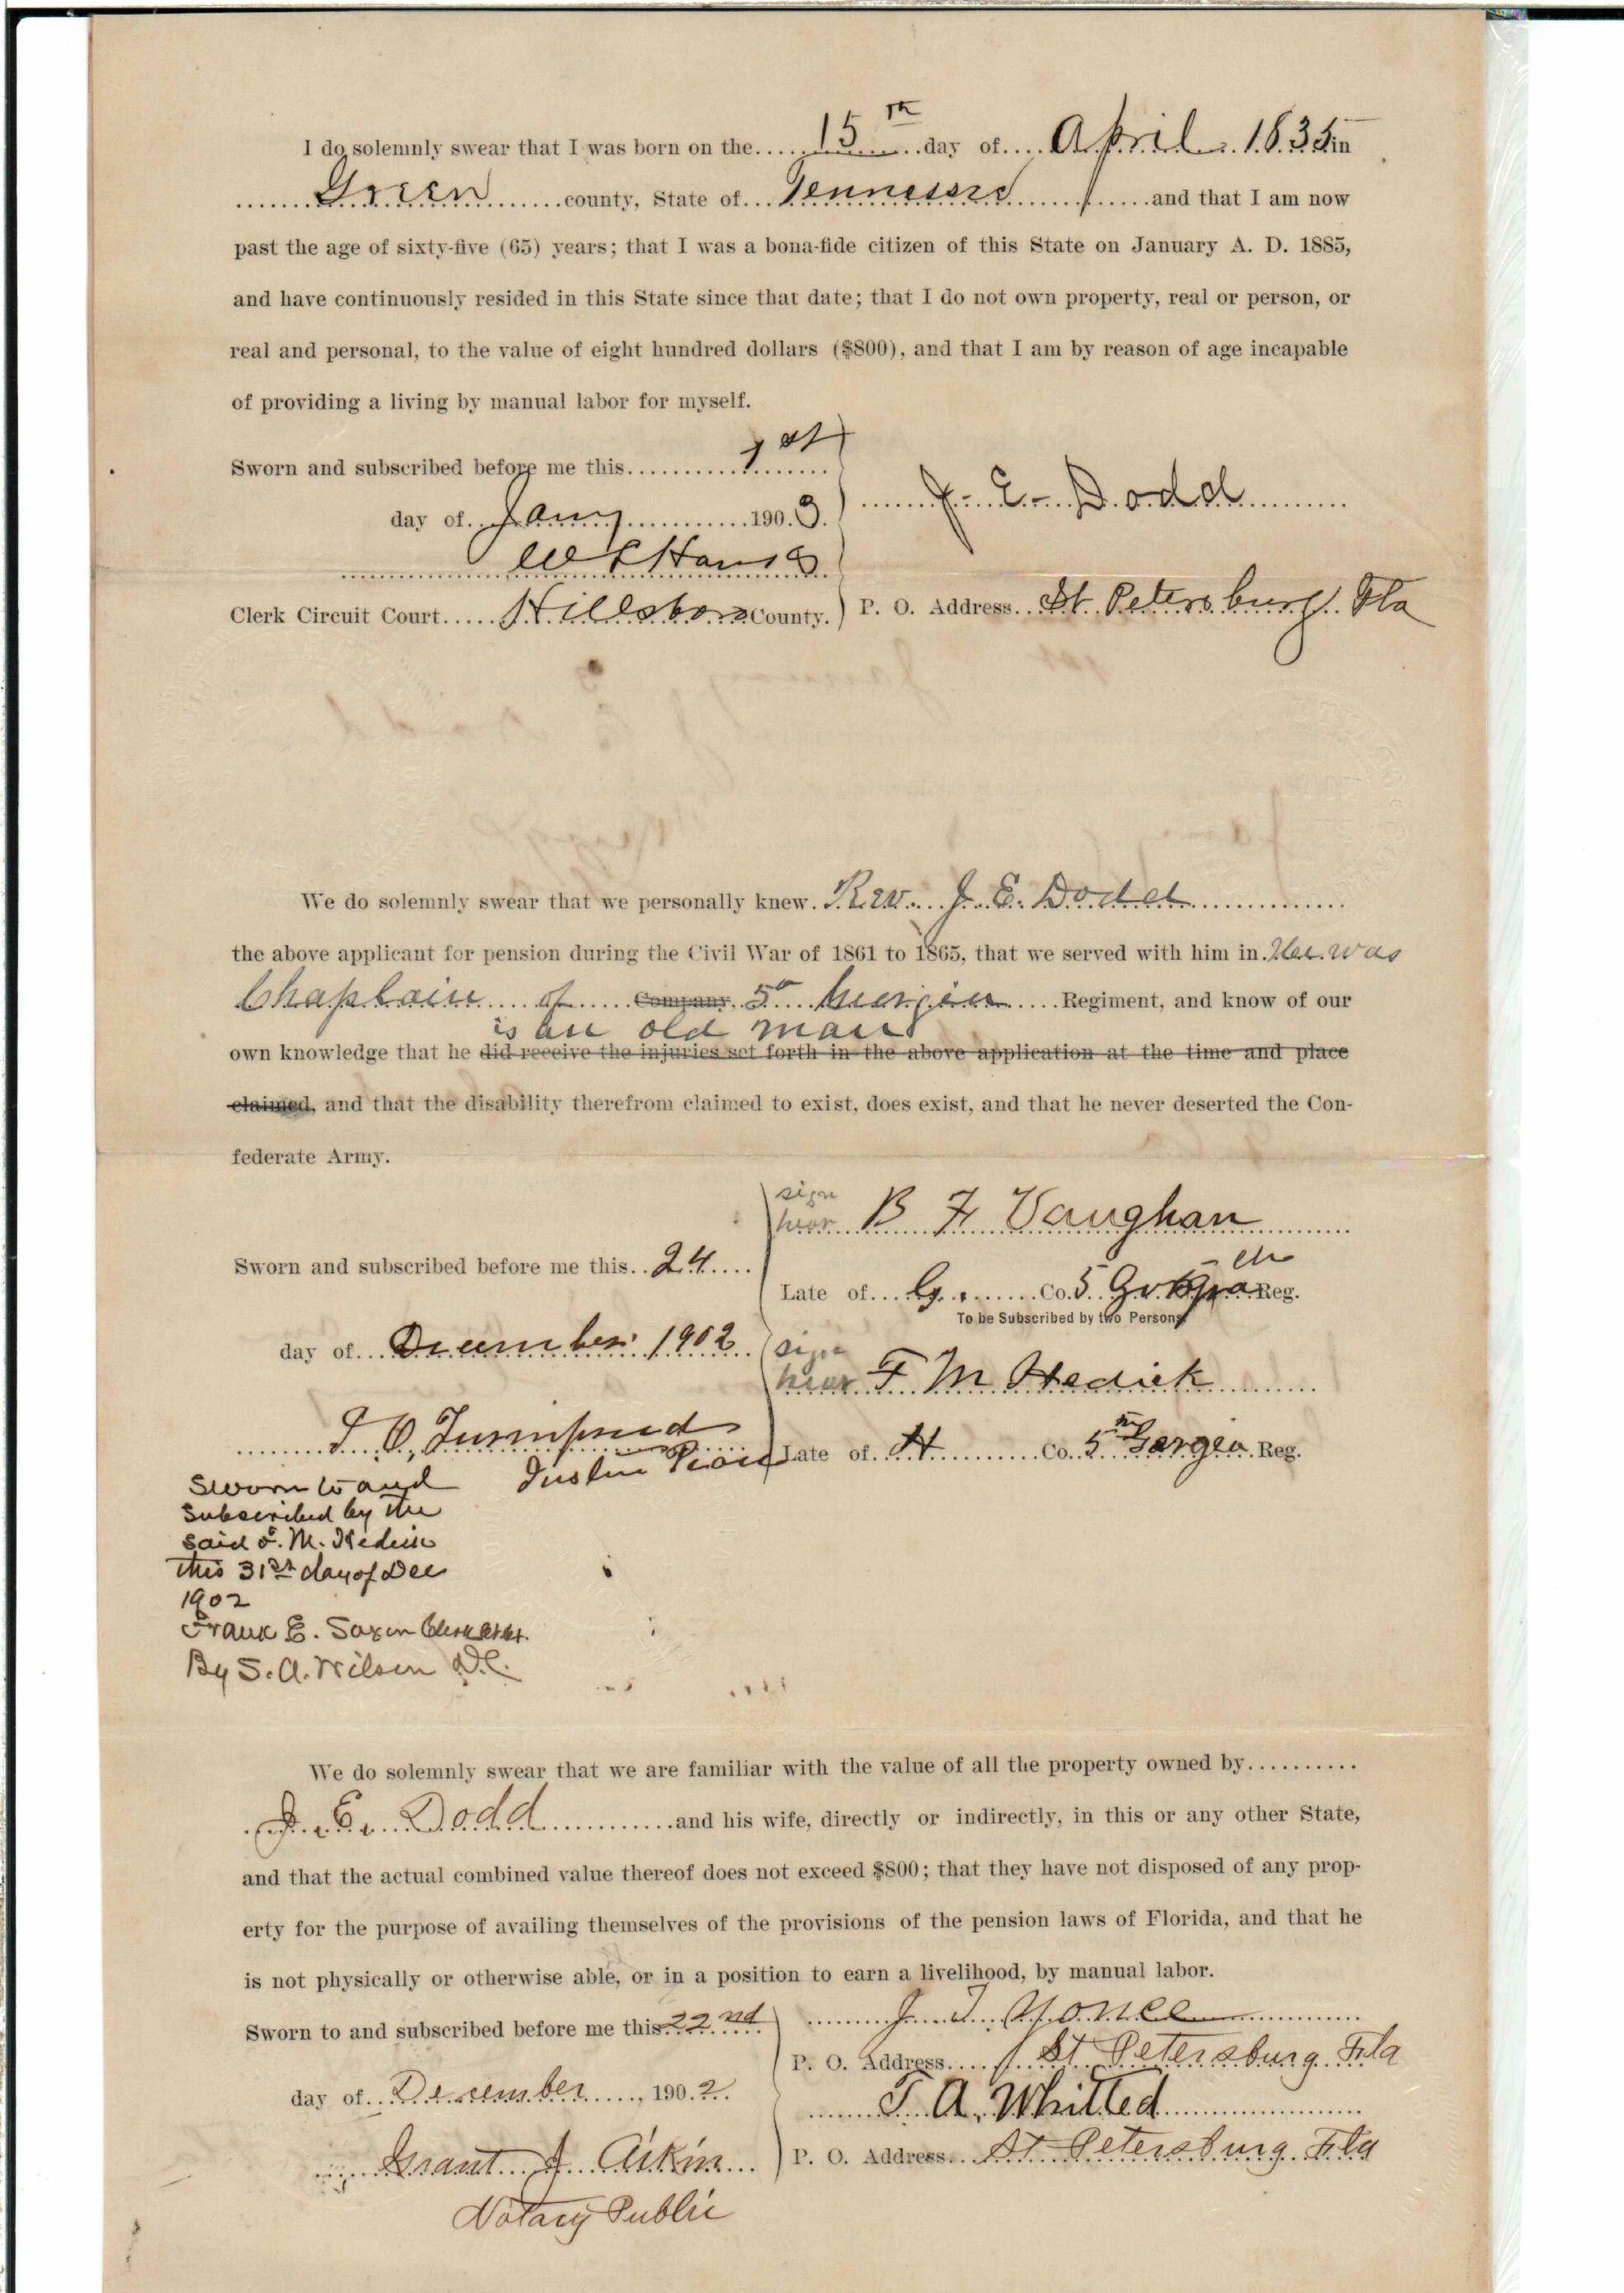 I do solemnly swear that I was born on the 15th day of April 1835 in
Green county, State of Tennessee and that I am now
past the age of sixty-five (65) years; that I was a bona-fide citizen of this State on January A. D. 1885,
and have continuously resided in this State since that date; that I do not own property, real or person, or
real and personal, to the value of eight hundred dollars ($800), and that I am by reason of age incapable
of providing a living by manual labor for myself.
Sworn and subscribed before me this 1st
day of Jany 1903.
J. E. Dodd
Clerk Circuit Court Hillsboro County.
P. O. Address St Petersburg Fla
We do solemnly swear that we personally knew Rev. J. E. Dodd
the above applicant for pension during the Civil War of 1861 to 1865, that we served with him in He was
Chaplain of Company 5" Georgia Regiment, and know of our
is an old man
own knowledge that he did receive the injuries set forth in the above application at the time and place
claimed, and that the disability therefrom claimed to exist, does exist, and that he never deserted the Con-
federate Army.
sign
hear B F Vaughan
Sworn and subscribed before me this 24
Late of G. Co. 5 Reg.
To be Subscribed by two Persons.
day of December 1902
sign
hear F M Hedick
Late of H Co. 5th Gorgia Reg.
Sworn to and
Subscribed by the
said F. M. Hedick
this 31st day of Dec
1902
Frank E. Saxon Clerk
By S. A. Wilson D.C.
We do solemnly swear that we are familiar with the value of all the property owned by
J. E. Dodd and his wife, directly or indirectly, in this or any other State,
and that the actual combined value thereof does not exceed $800; that they have not disposed of any prop-
erty for the purpose of availing themselves of the provisions of the pension laws of Florida, and that he
is not physically or otherwise able, or in a position to earn a livelihood, by manual labor.
Sworn to and subscribed before me this 22nd
J. T. Yonce
P. O. Address St Petersburg Fla
day of December, 1902.
T. A. Whitted
P. O. Address St Petersburg Fla
Grant J Aikin
Notary Public